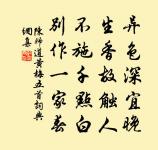 异色深宜晚
生香故触人
不施千点白
别作一家春
陈师道黄梅五首词典
网集